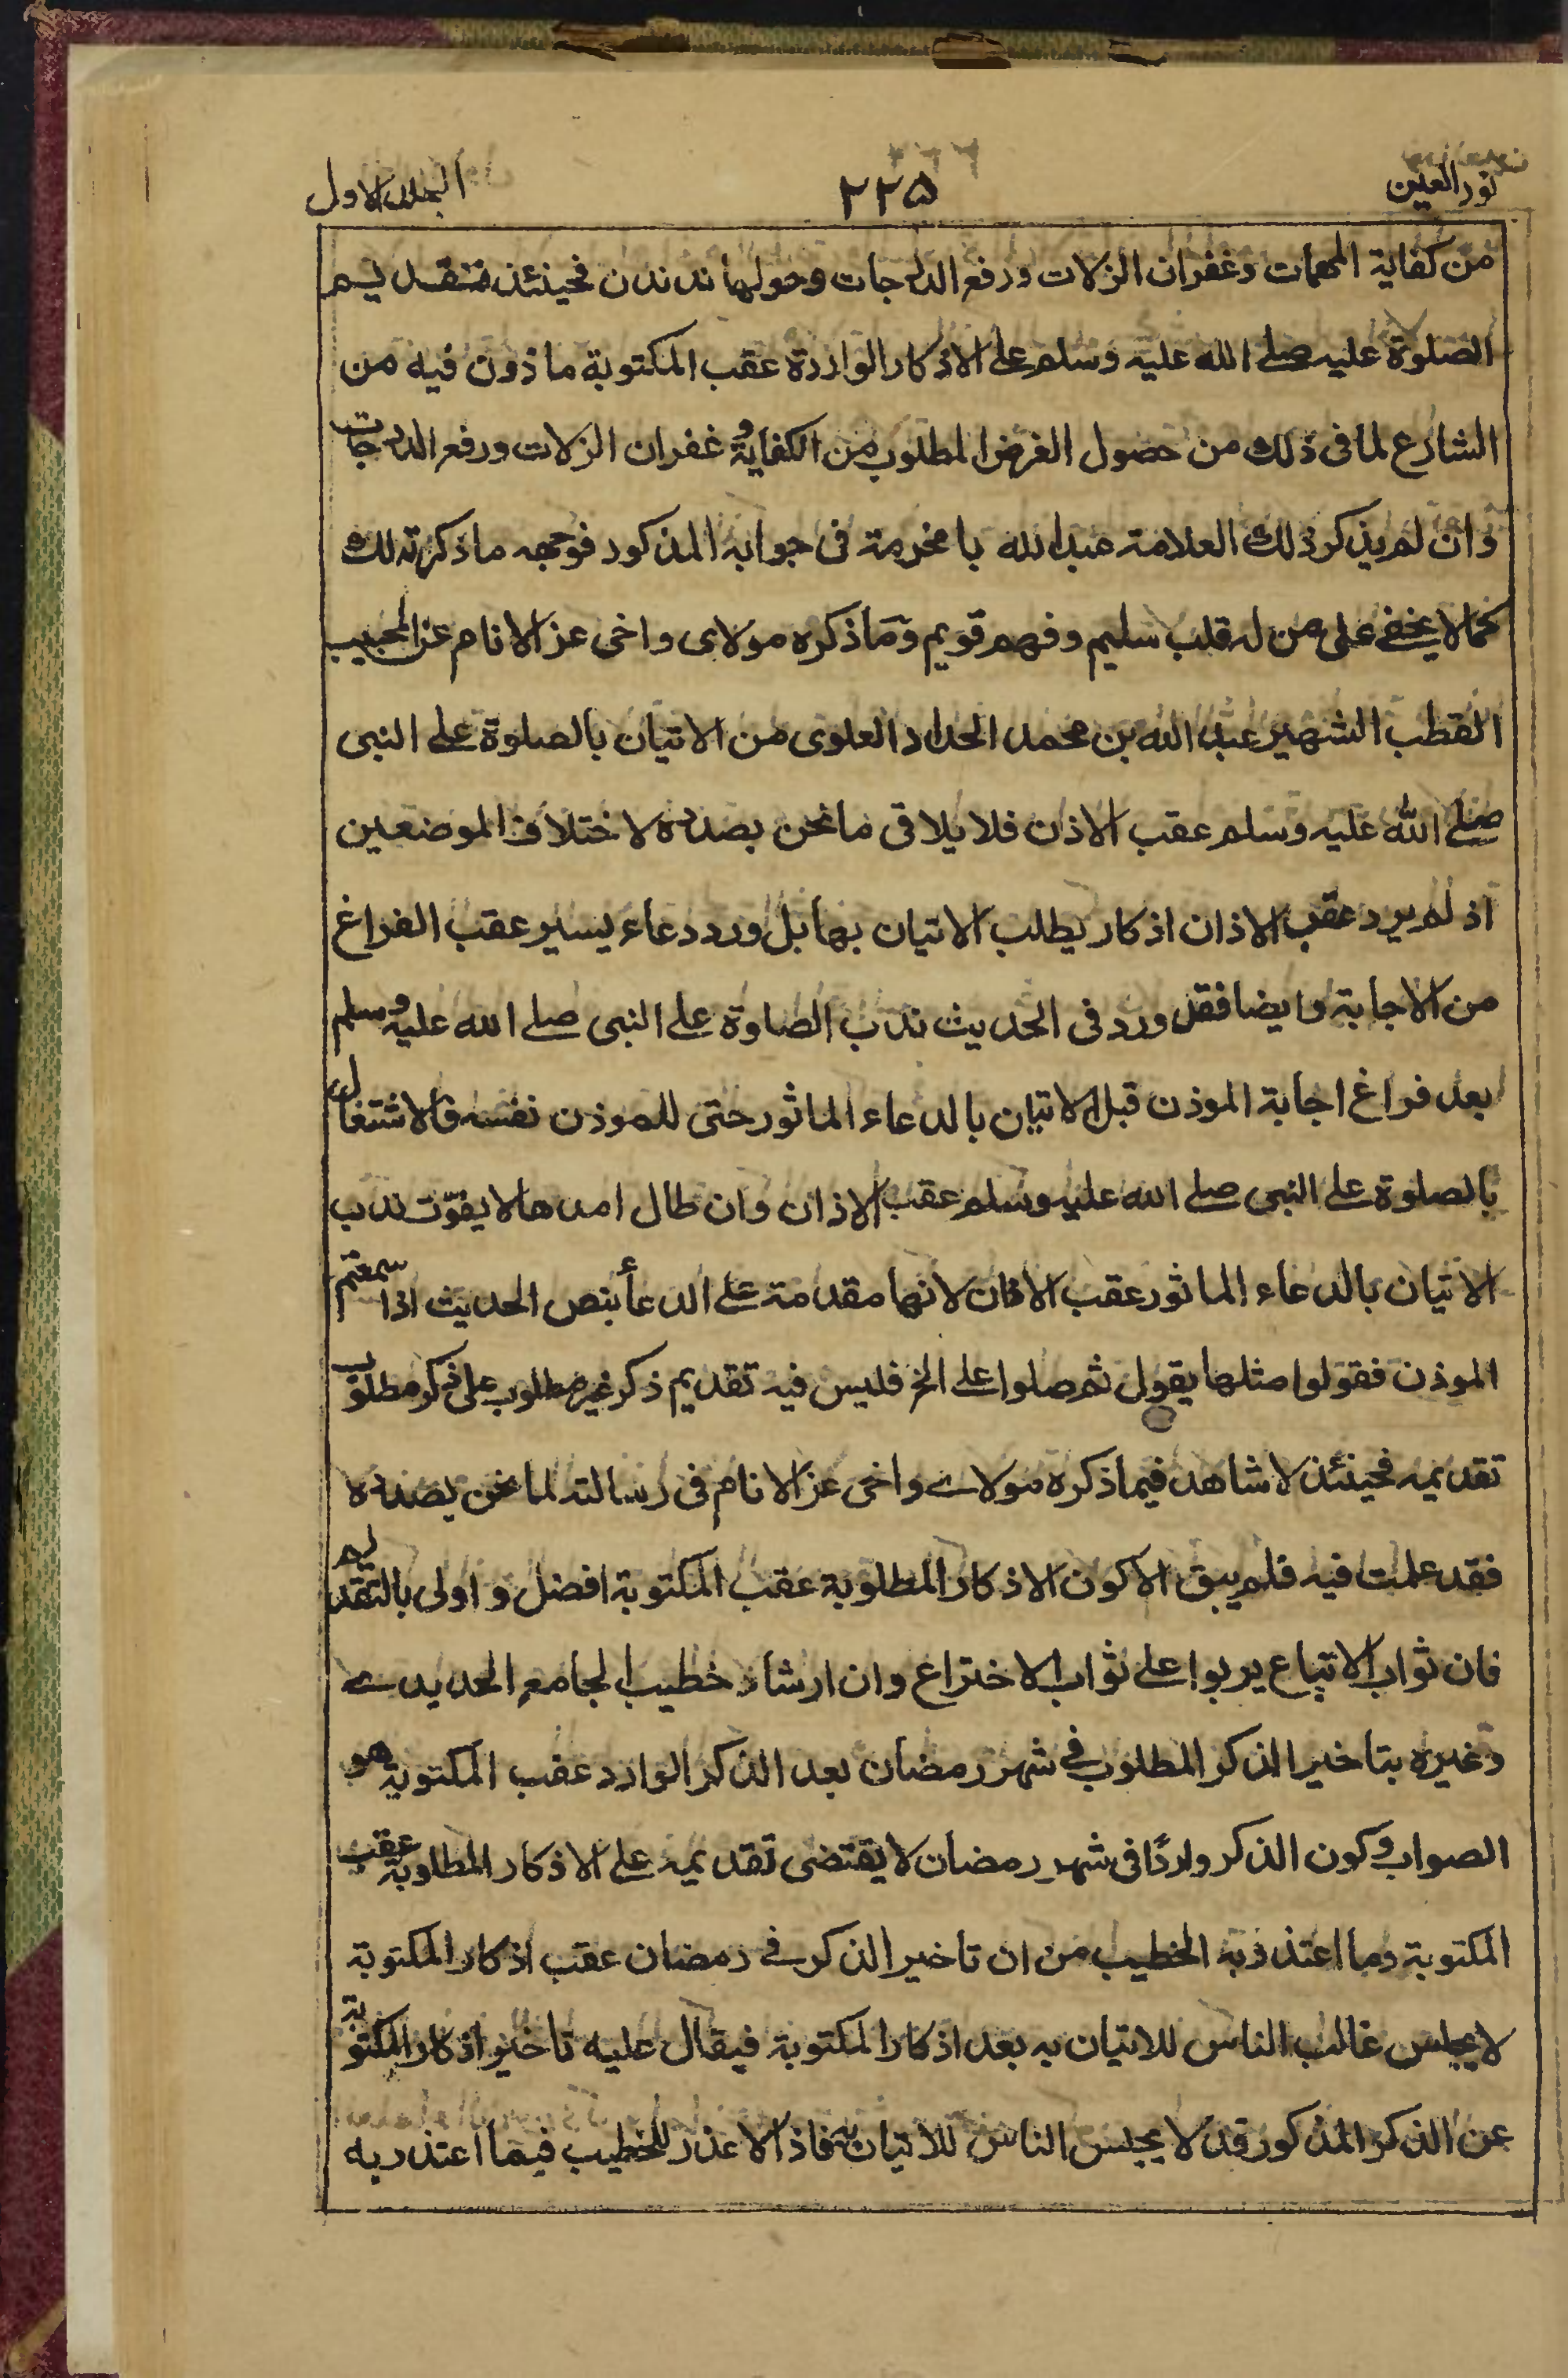 نور العين ٢٢٥ الجلد الاول
من كفاية المهمات وغفران الزلات ورفع الدرجات وحولها ندندن فحينئذ فتقديم
الصلوة عليه صلى الله عليه وسلم على الاذكار الواردة عقب المكتوبة ماذون فيه من
الشارع لما فى ذلك من حصول الغرض المطلوب من الكفاية و غفران الزلات ورفع الدرجات
وان لم يذكر ذلك العلامة عبد الله بامخرمة فى جوابه المذكور فوجهه ما ذكرته لك
كما لا يخفى على من له قلب سليم وفهم قويم وما ذكره مولاى واخى عز الانام عن الحبيب
القطب الشهير عبد الله بن محمد الحداد العلوى من الاتيان بالصلوة على النبى
صلى الله عليه وسلم عقب الاذان فلا يلاقى مانحن بصدده لاختلاف الموضعين
اذ لم يرد عقب الاذان اذكار يطلب الاتيان بها بل ورد دعاء يسير عقب الفراغ
من الاجابة وايضا فقد ورد فى الحديث ندب الصلوة على النبى صلى الله عليه وسلم
بعد فراغ اجابة الموذن قبل الاتيان بالدعاء الماثور حتى للموذن نفسه فالاشتغال
بالصلوة على النبى صلى الله عليه وسلم عقب الاذان وان طال امدها لا يفوّت ندب
الاتيان بالدعاء الماثور عقب الاذان لانها مقدمة على الدعأ بنص الحديث اذا سمعتم
الموذن فقولوا مثلها يقول ثم صلوا على الخ فليس فيه تقديم ذكر غير مطلوب على ذكر مطلوب
تقديمه فحينئذ لا شاهد فيما ذكره مولاى واخى عز الانام فى رسالته لما نحن بصدده
فقد علمت فيه فلم يبق الا كون الاذكار المطلوبة عقب المكتوبة افضل و اولى بالتقديم
فان ثواب الاتباع يربوا على ثواب الاختراع وان ارشاد خطيب الجامع الحديدى
وغيره بتاخير الذكر المطلوب فى شهر رمضان بعد الذكر الوارد عقب المكتوبة هو
الصواب وكون الذكر واردًا فى شهر رمضان لا يقتضى تقديمه على الاذكار المطلوبة عقب
المكتوبة وما اعتذر به الخطيب من ان تاخير الذكر فى رمضان عقب اذكار المكتوبة
لا يجلس غالب الناس للاتيان به بعد اذكار المكتوبة فيقال عليه تاخير اذكار المكتوبة
عن الذكر المذكور قد لا يجلس الناس للاتيان به فاذا لا عذر للخطيب فيما اعتذر به